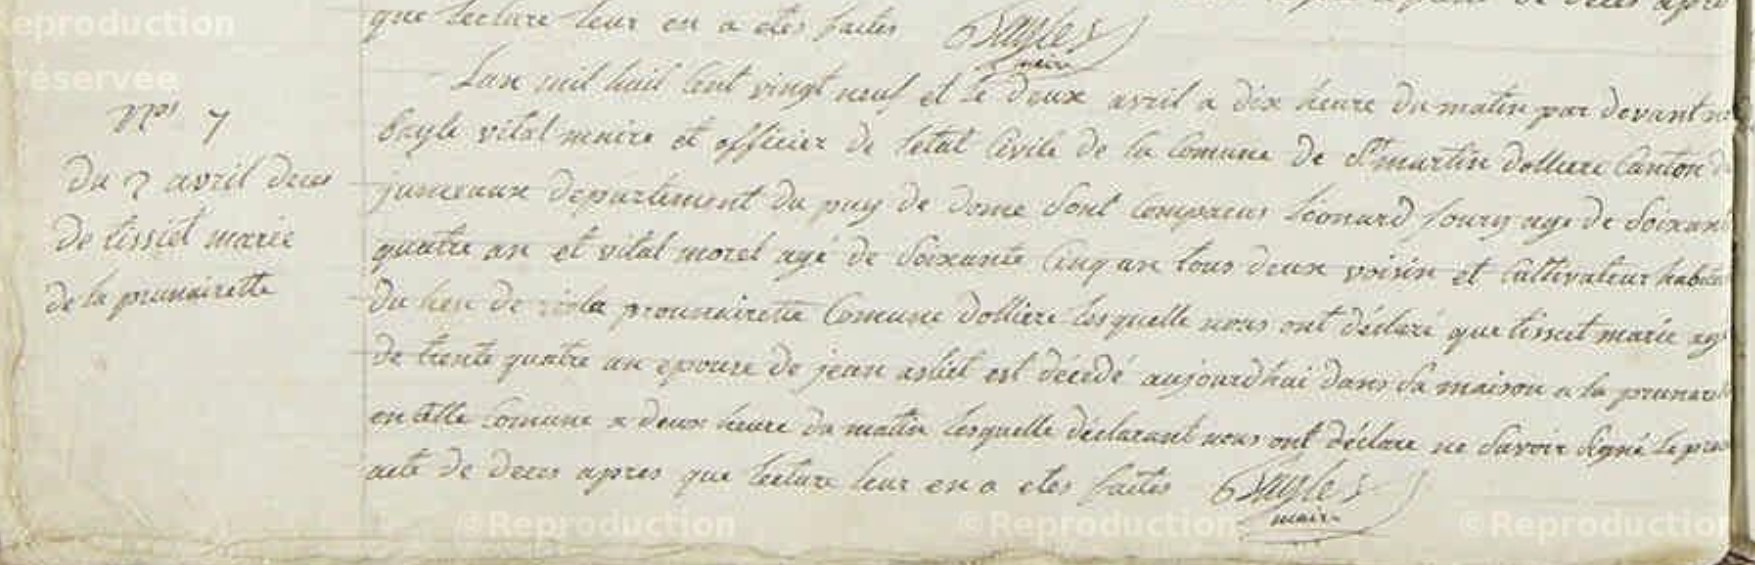 que lecture leur en a etes faites Bayle
maire
Lan mil huil Cent vingt neuf et le deux avril a dix heure du matin par devant
bayle vital maire et officier de letat Civile de la Comune de St martin dolliere Canton
jumeaux departement du puy de dome sont Comparus leonard soury age de Soixant
quatre an et vital morel agé de Soixante Cinq an tous deux voisin et Cultivateur
du lieu de prounairette Comune dolliere lesquelle nous ont déclaré que tisset marie
de trente quatre an epouse de jean est décedé aujourdhui dans Sa maison a la
en Comune a deux heure du matin lesquelle declarant nous ont déclare ne Savoir Signé le
acte de deces apres que lecture leur en a etes faites Bayle
maire
No 7
Du 2 avril deces
De tisset marie
de la prunairette
Reproduction
réservée
©Reproduction ©Reproduction ©Reproduction